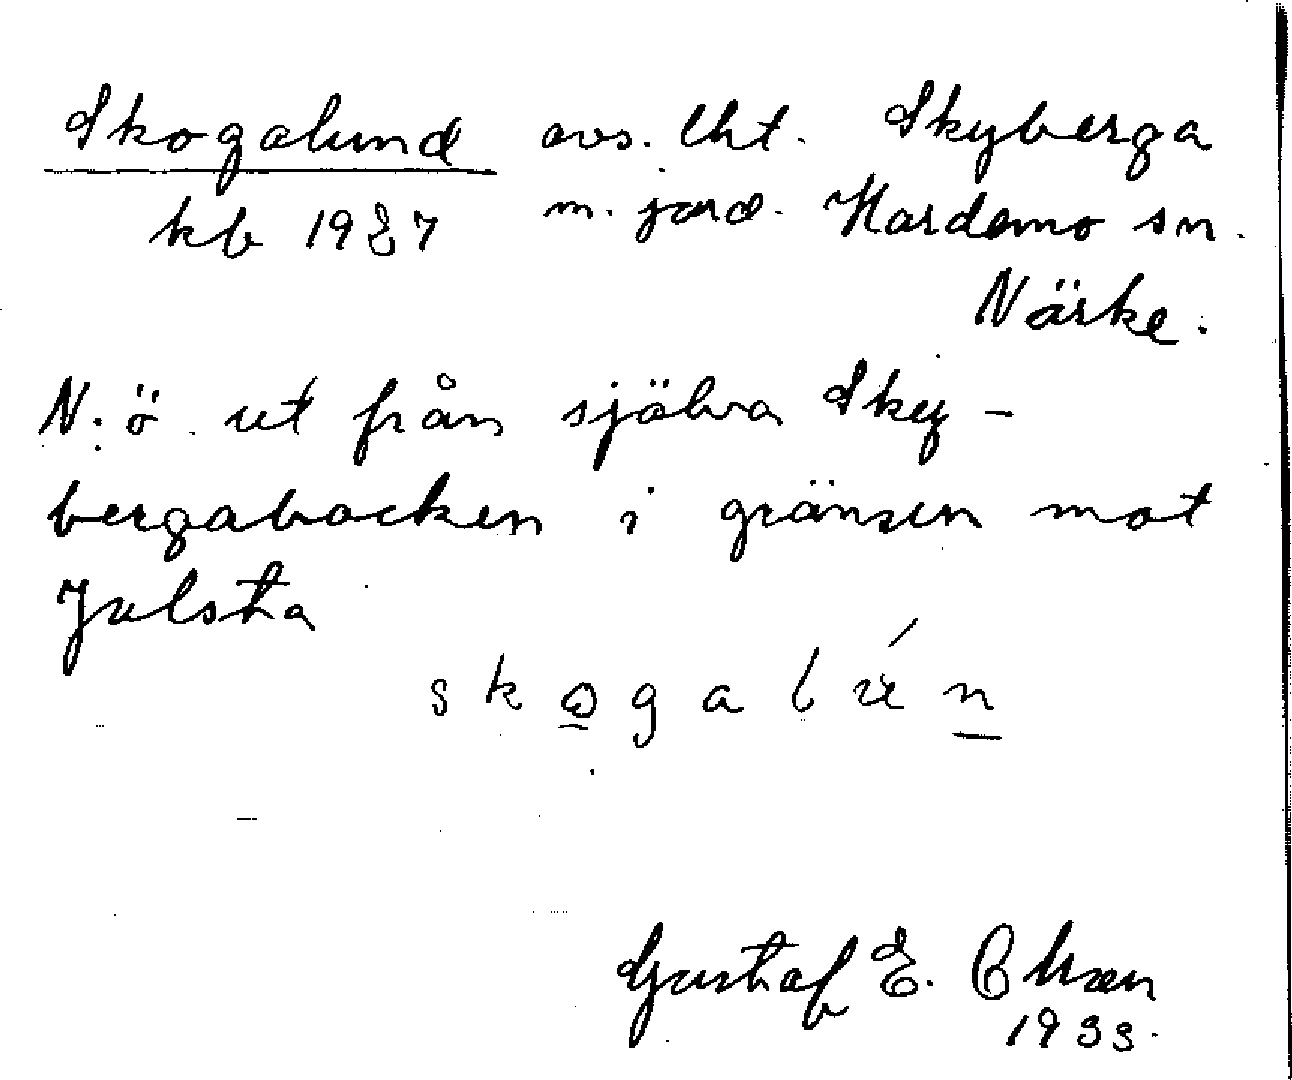 Skogalund avs. lht. Skyberga
kb 1927 m. jord. Hardemo sn.
Närke.
N. ö. ut från själva Sky-
bergabacken i gränsen mot
Julsta
skogalún
Gustaf E.
1933.